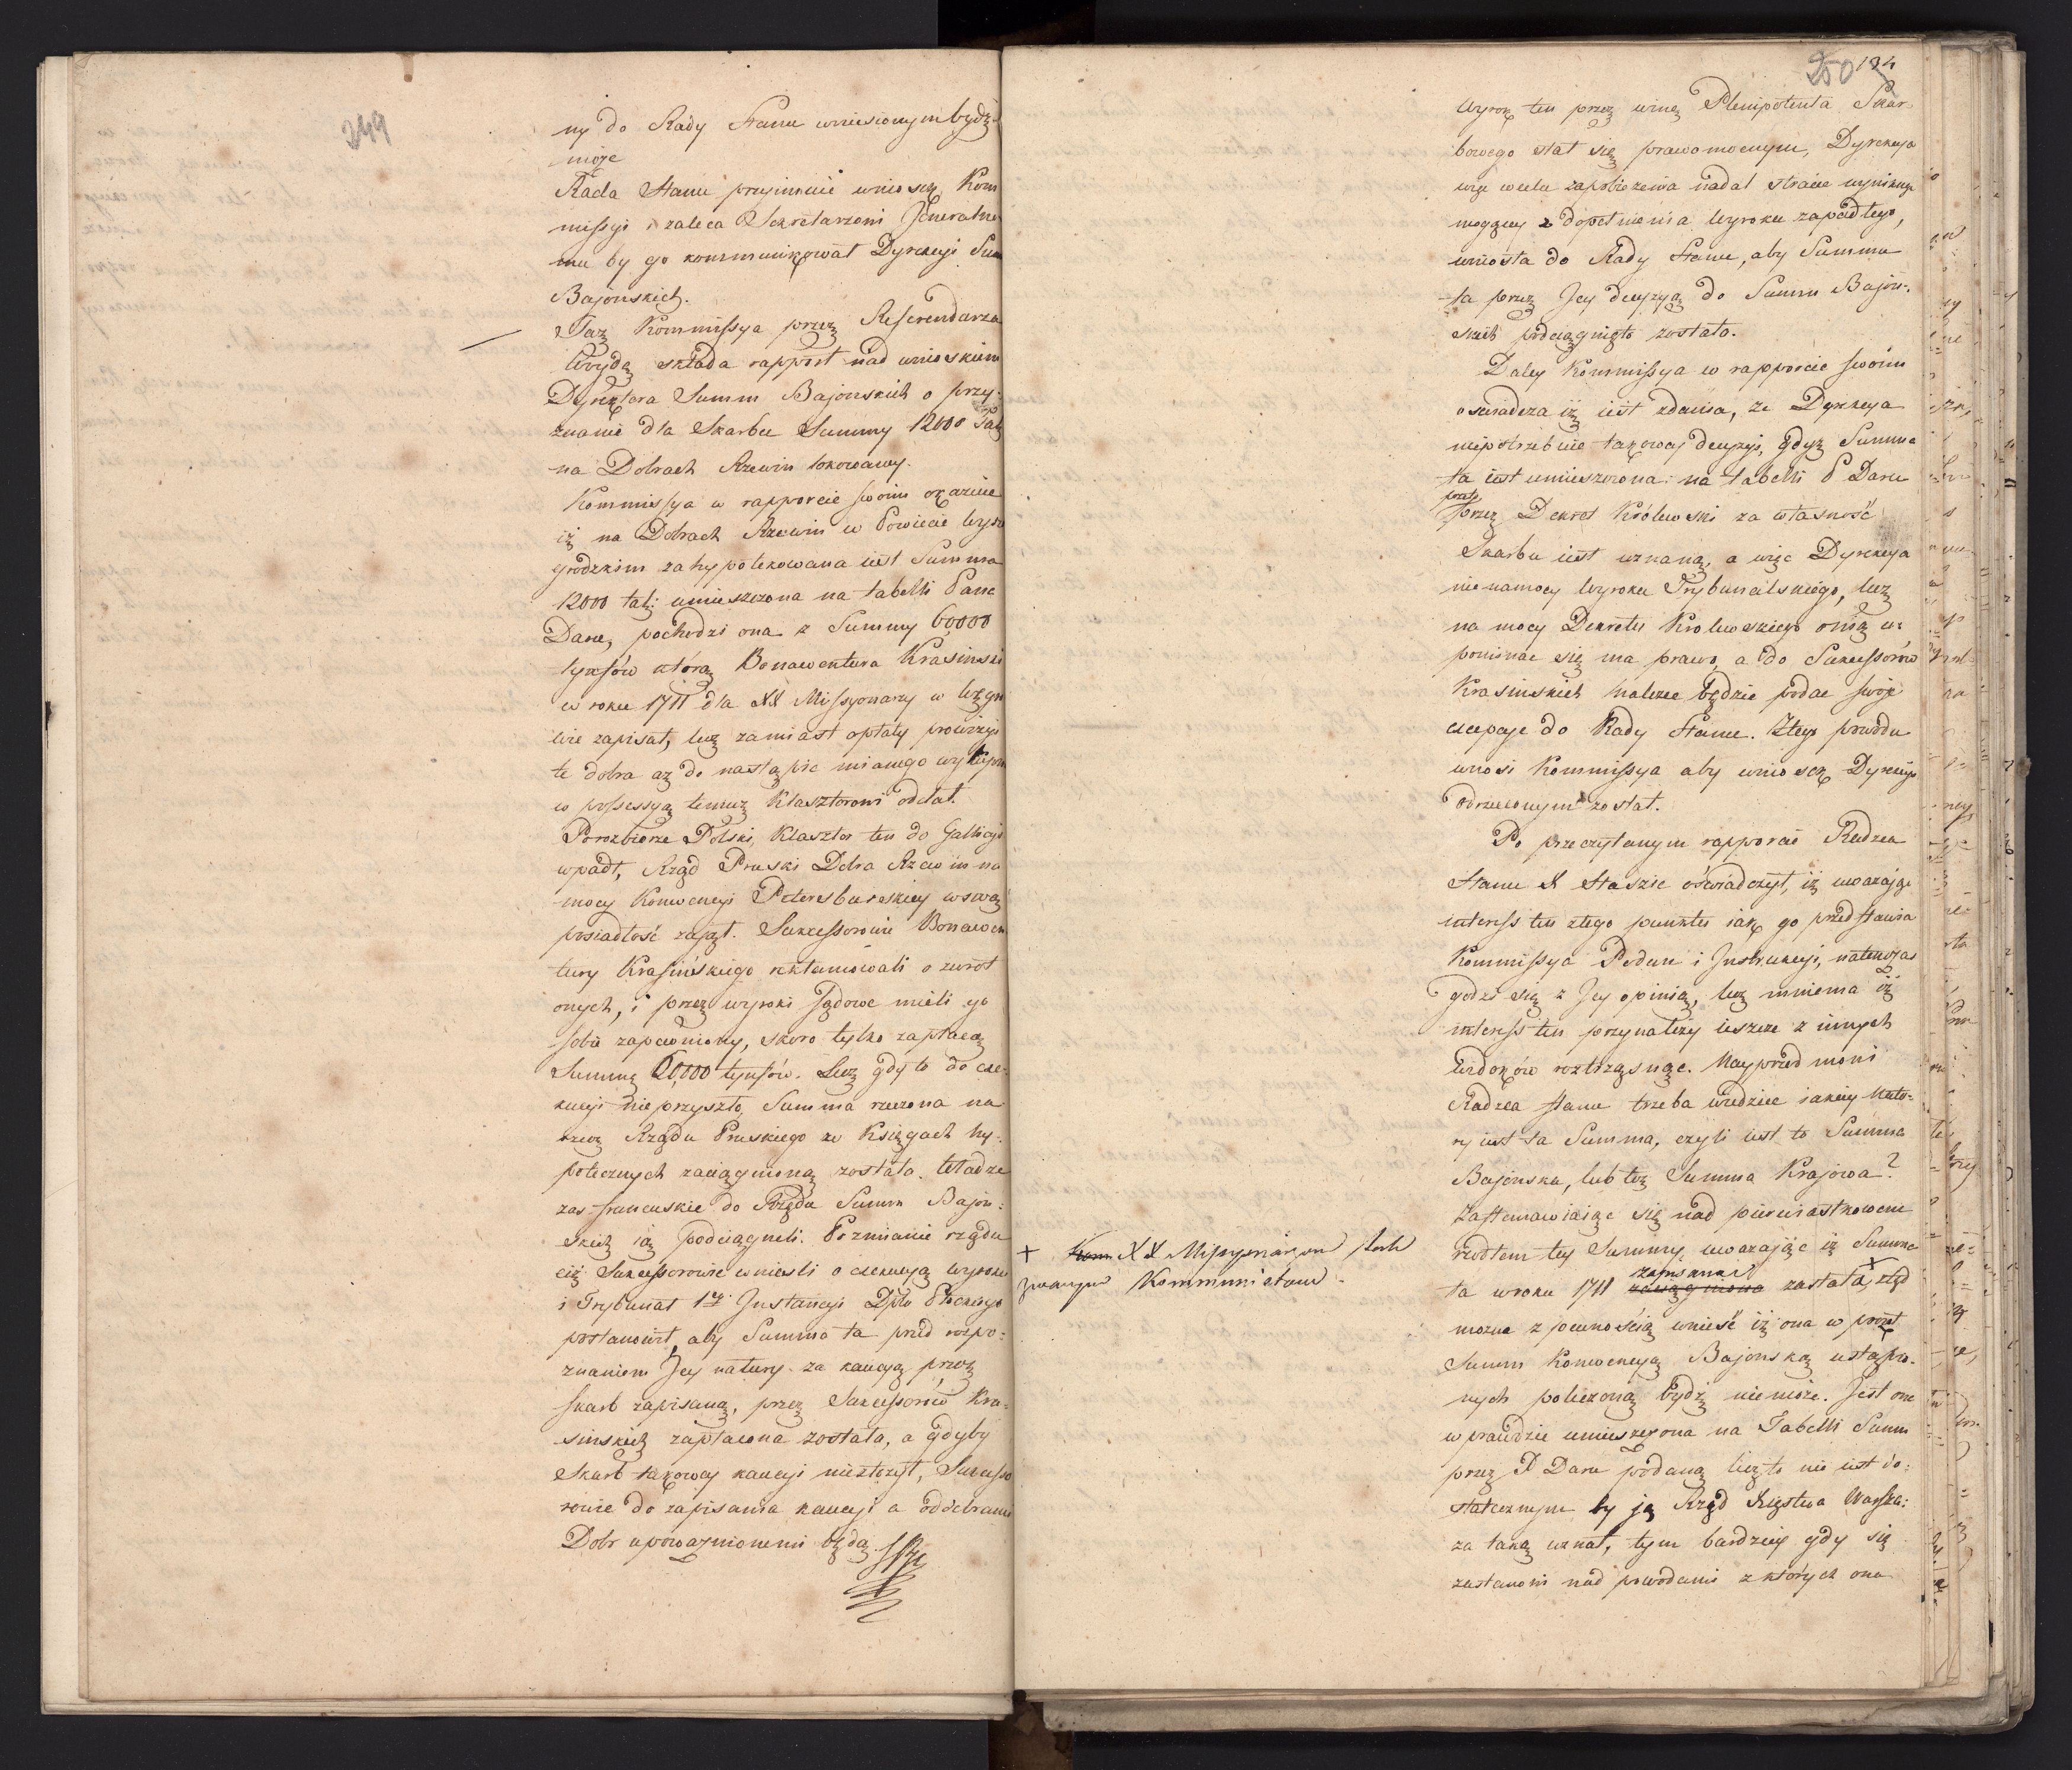 249
ny do Rady Stanu wniesionym bydź
może
Rada Stanu przyimuie wniosek Kom
missyi i zaleca Sekretarzowi Jeneralne
mu by go kommunikował Dyrekcyi Summ
Bajońskich.
Taż Kommissya przez Referendarza
Woydę składa rapport nad wnioskiem
Dyrektora Summ Bajońskich o przy-
znanie dla Skarbu Summy 12000 Tal
na Dobrach Rzewin lokowaney.
Kommissya w rapporcie swoim okazuie
iż na Dobrach Rzewin w Powiecie Wysz
grodzkim zahypotekowana iest Summa
12000 tal: umieszczona na tabelli Pana
Daru, pochodzi ona z Summy 60,000
tynfów którą Bonawentura Krasinski
w roku 1711 dla XX Missyonarzy w Węgro
wie zapisał, lecz zamiast opłaty prowizyi
te dobra aż do nastąpić mianego wykupna
w possessyą temuż Klasztorowi oddał.
Porozbiorze Polski, Klasztor ten do Gallicyi
wpadł, Rząd Pruski Dobra Rzewin na
mocy Konwencyi Petersburskiey w swą
posiadłość zajął. Sukcessorowie Bonawen
tury Krasińskiego reklamowali o zwrot
onych, i przez wyroki sądowe mieli go
sobie zapewniony, skoro tylko zapłacą
Summę 60,000 tynfów. Lecz gdy to do exe-
kucyi nieprzyszło, Summa rzeczona na
rzecz Rządu Pruskiego w Księgach hy-
potecznych zaciągnioną została. Władze
zaś francuskie do Rzędu Summ Bajoń:
skich ią podciągneli. Po zmianie rządu
ciż Sukcessorowie wnieśli o exekucyą wyroku
i Trybunał 1ey Instancyi Dptu Płockiego
postanowił, aby Summa ta przed rozpo:
znaniem Jey natury za kaucyą przez
skarb zapisaną, przez Sukcessorów Kra-
sinskich zapłacona została, a gdyby
Skarb takowey kaucyi niezłożył, Sukcesso
rowie do zapisania kaucyi a odebrania
Dobr upoważnionemi będą.
250 134
Wyrok ten przez winę Plenipotenta Skar
bowego stał się prawomocnym, Dyrekcya
więc w celu zapobieżenia nadal stracie wyniknąć
mogącey z dopełnienia Wyroku zapadłego,
wniosła do Rady Stanu, aby Summa
ta przez Jey decyzyą do Summ Bajoń-
skich podciągnięta została.
Daley Kommissya w rapporcie swoim
oświadcza iż iest zdania, że Dyrekcya
niepotrzebuie takowey decyzyi, gdyż Summa
ta iest umieszczona na tabelli P Daru
przez
przez Dekret Królewski za własność
Skarbu iest uznaną, a więc Dyrekcya
nie na mocy Wyroku Trybunalskiego, lecz
na mocy Dekretu Krolewskiego onią u:
pominać się ma prawo, a do Sukcessorów
Krasinskich należeć będzie podać swoje
excepcye do Rady Stanu. Z tego powodu
wnosi Kommissya aby wniosek Dyrekcyi
odrzuconym został.
Po przeczytanym rapporcie Radzca
Stanu X Staszic oświadczył, iż uważając
interess ten z tego punktu iak go przedstawia
Kommissya Podań i Instrukcyi, natenczas
godzi się z Jey opinią, lecz mniema iż
interess ten przynależy ieszcze z innych
widoków roztrząsnąć. Nayprzód mowi
Radzca stanu trzeba wiedzieć iakiey Natu-
ry iest ta Summa, czyli iest to Summa
Bajonska, lub też Summa Krajowa?
Zastanawiaiąc się nad pierwiastkowem
źrodłem tey Summy, uważając iż Summa
ta w roku 1711 zaciągniona zapisana została, + ztąd
można z pewnością wnieść iż ona w poczet
Summ Konwencyą Bajonską ustąpio-
nych policzoną bydź niemoże. Jest ona
wprawdzie umieszczona na Tabelli Summ
przez P Daru podaną lecz to nie iest do:
statecznym by ją Rząd Xięstwa Warsza:
za taką uznał, tym bardziey gdy się
zastanowi nad powodami z których ona
+ XX Missyonarzom
zwanym Kommunistami